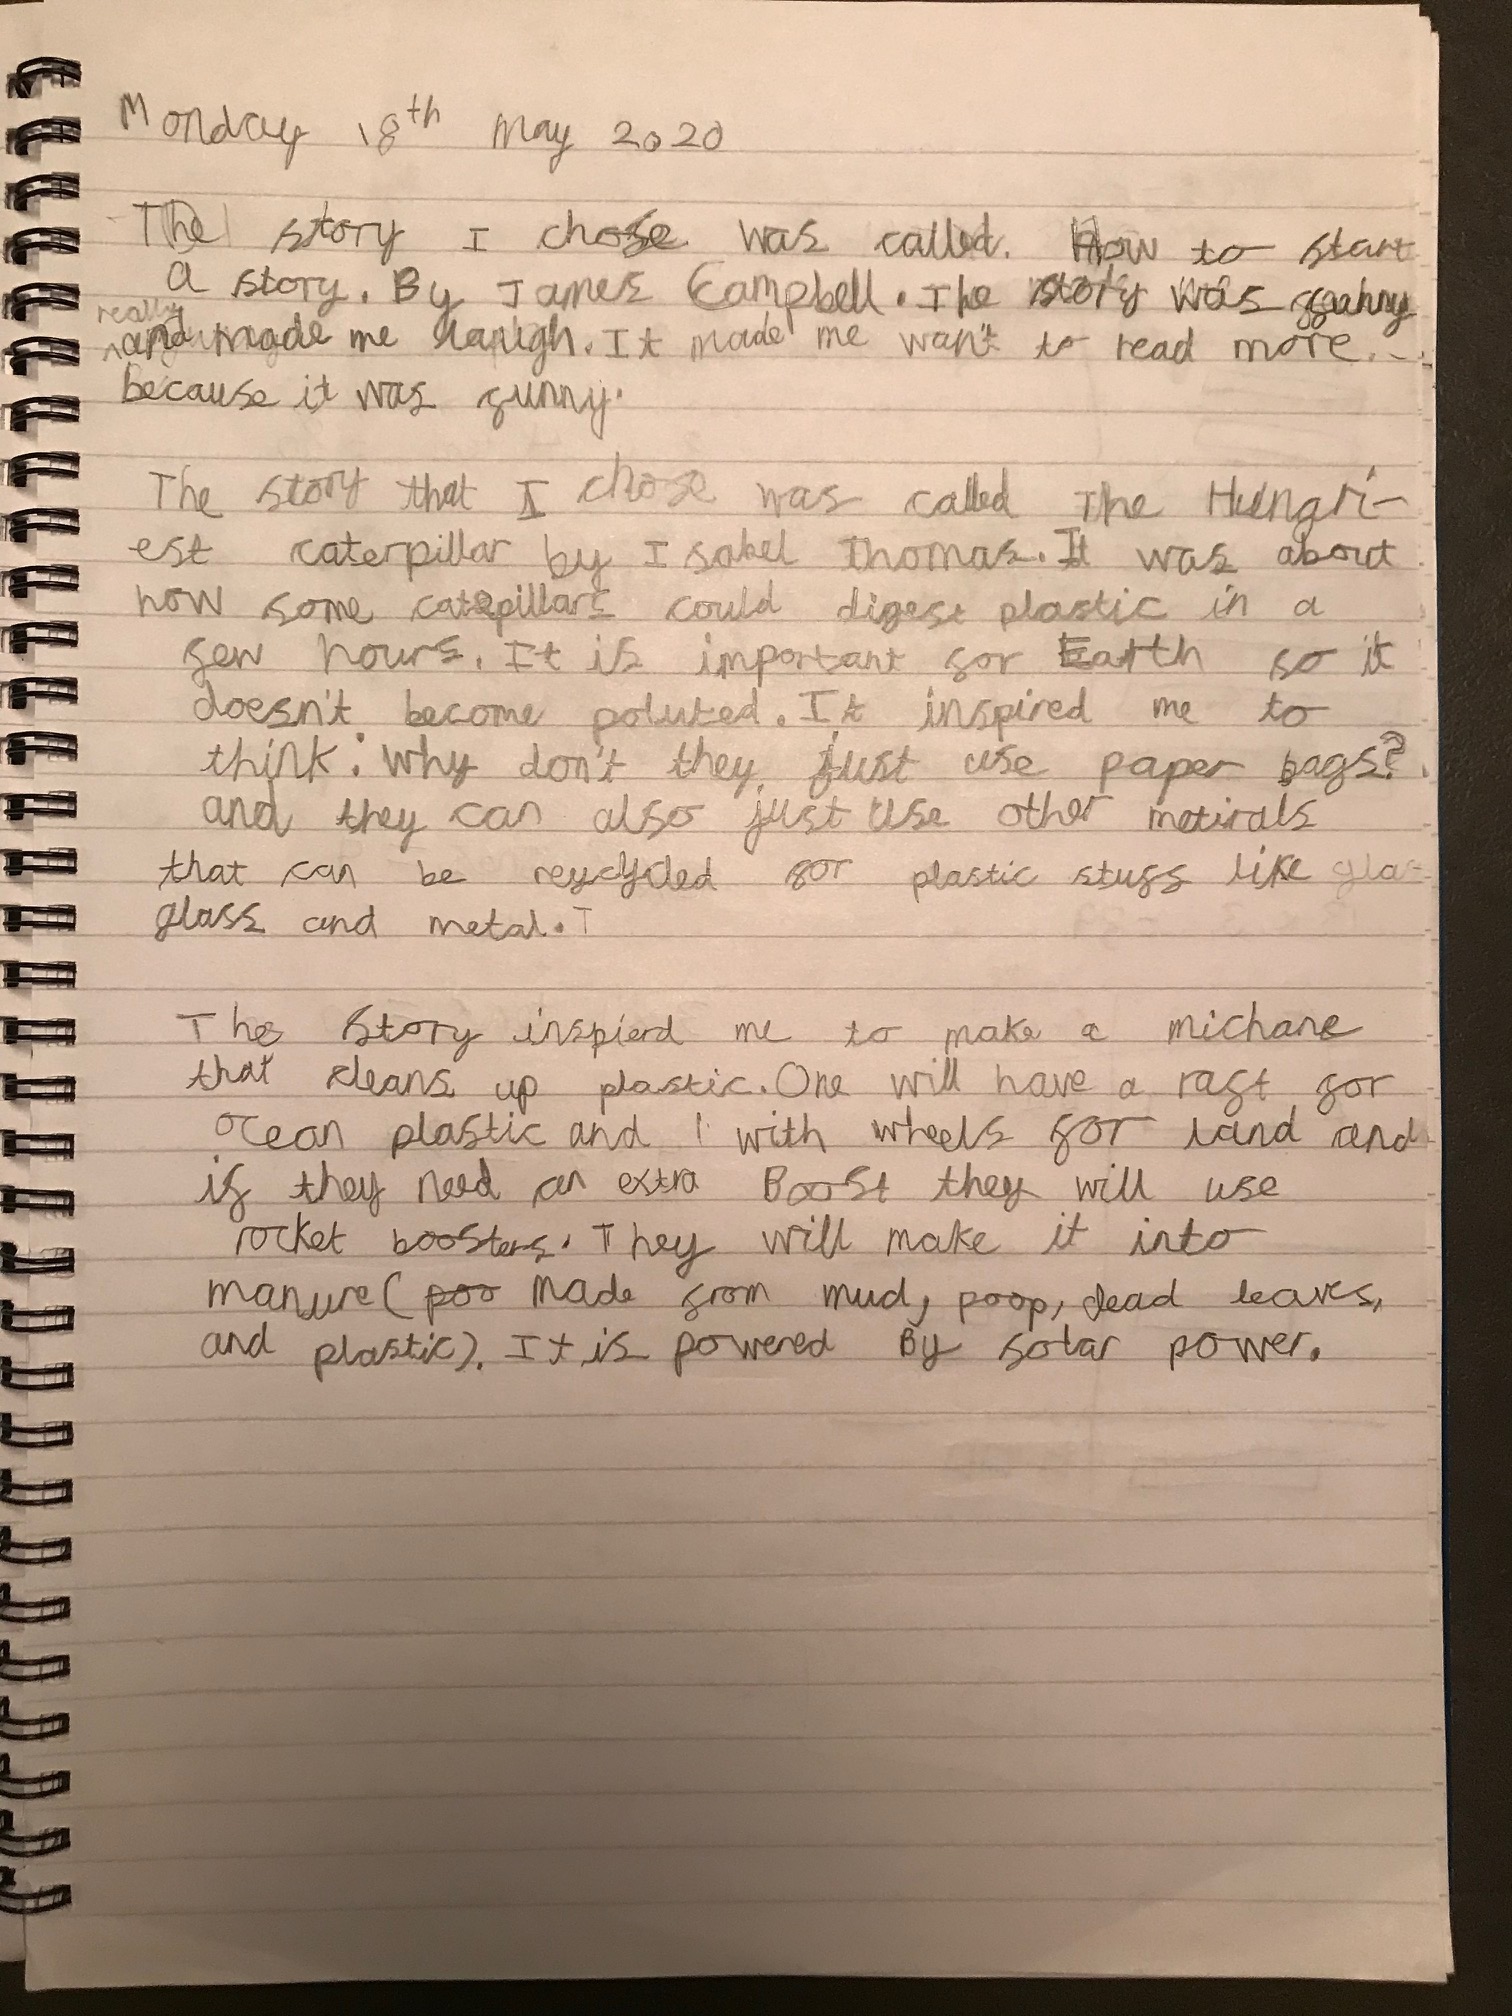 Monday 18th May 2020
The story I chose was called. How to start
a story. By James Campbell. The story was funny
really
and made me laugh. It made me wan't to read more...
because it was funny.
The story that I chose was called The Hungri-
est caterpillar by Isabel Thomas. It was about
how some caterpillars could digest plastic in a
few hours. It is important for Earth so it
doesn't become poluted. It inspired me to
think: Why don't they just use paper bags?
and they can also just use other metirals
that can be recycled for plastic stuff like glas
glass and metal. T
The story inspierd me to make a michane
that cleans up plastic. One will have a raft for
ocean plastic and 1 with wheels for land and
if they need an extra Boost they will use
rocket boosters. They will make it into
manure (poo Made from mud, poop, dead leaves,
and plastic). It is powered By solar power.